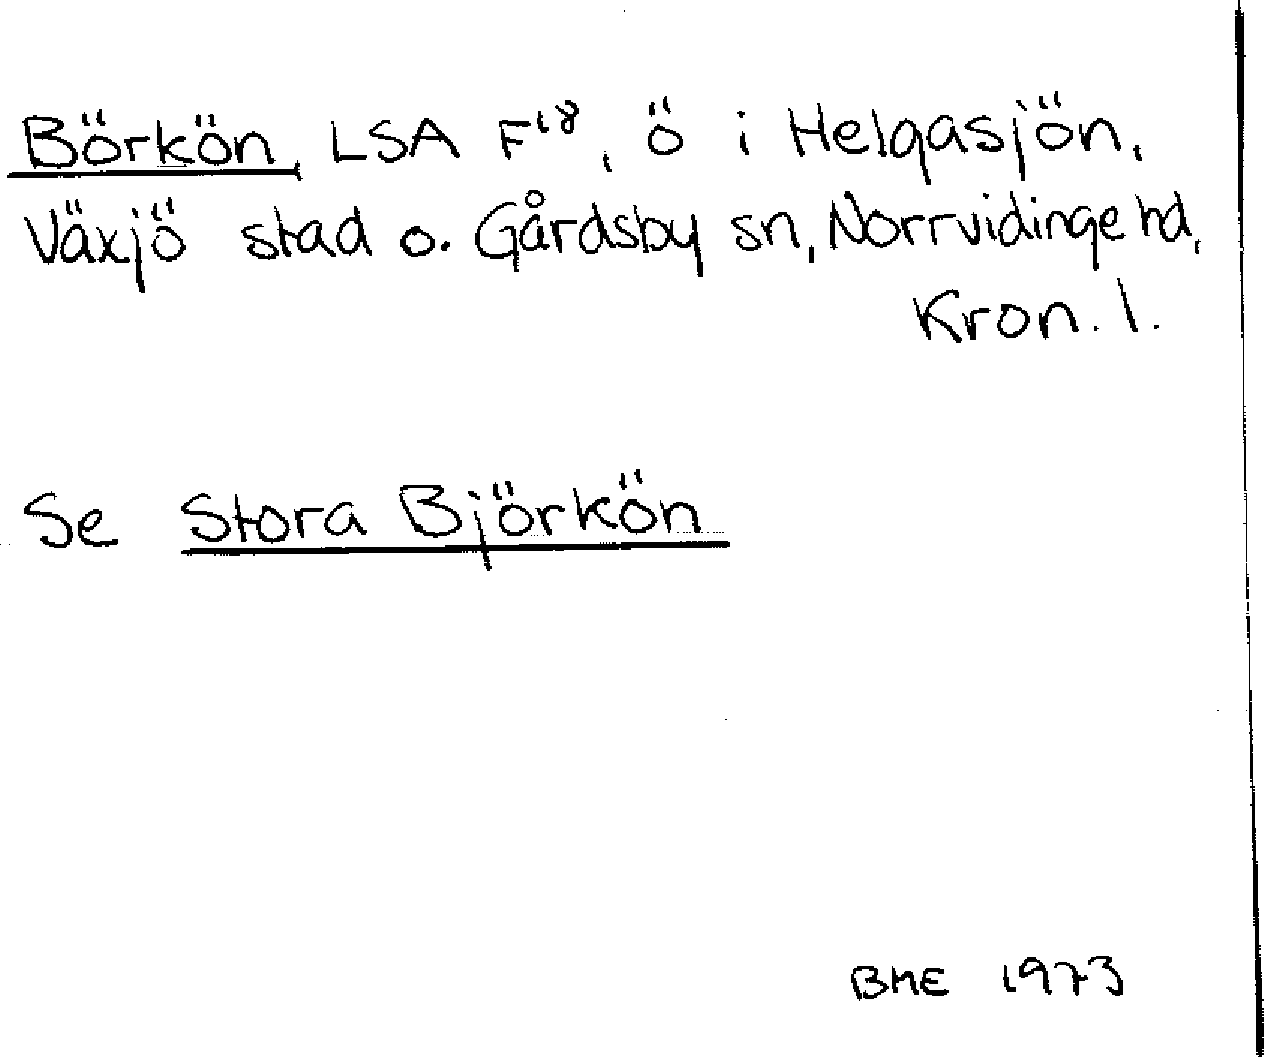 Börkön, LSA F¹⁸, ö i Helgasjön,
Växjö stad o. Gårdsby sn, Norrvidinge hd,
Kron. l.
Se Stora Björkön
BME 1973